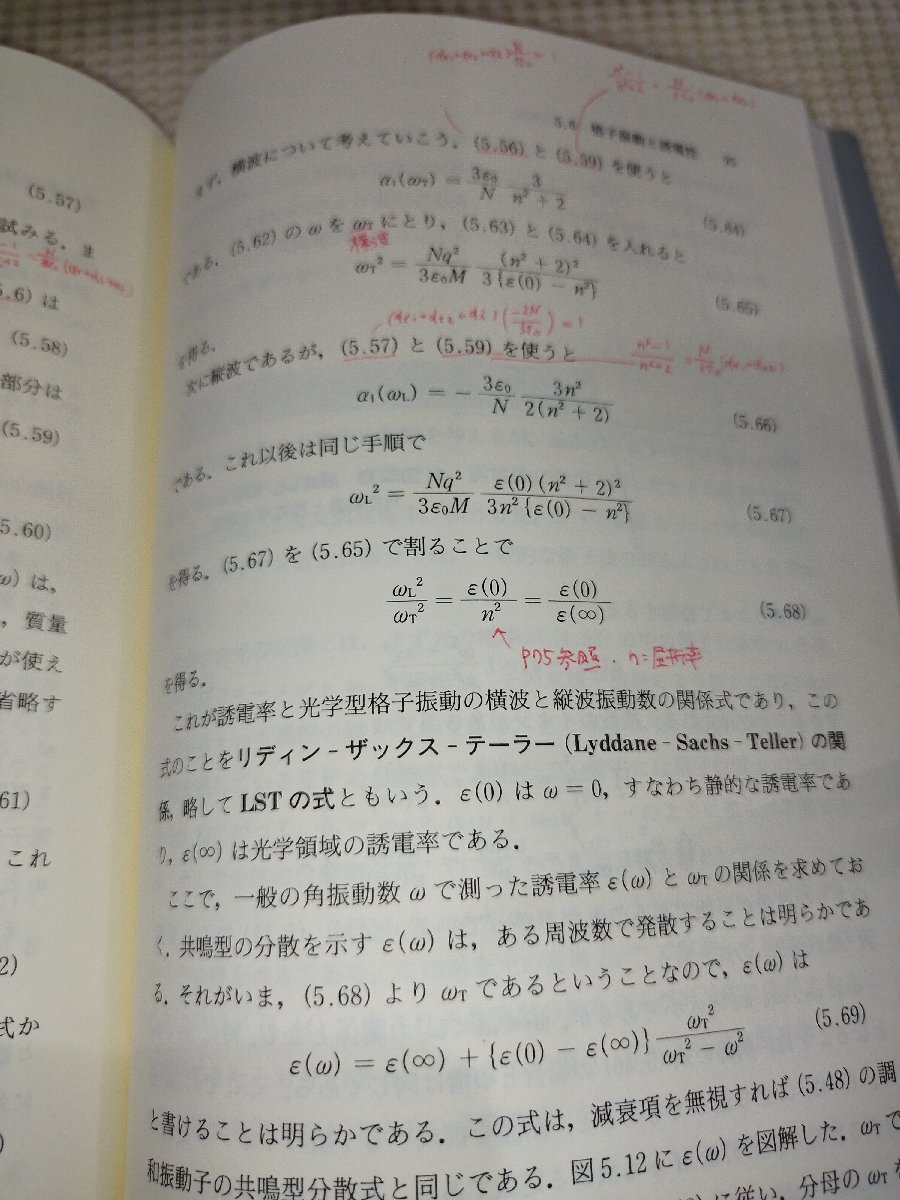 (5.57)
試みる．ま
5.6) は
(5.58)
部分は
(5.59)
5.60)
ω) は，
，質量
が使え
省略す
61)
これ
2)
式か
5.6 格子振動と誘電性
まず，横波について考えていこう．(5.56) と (5.59) を使うと
α₁(ω_T) = 3ε₀/N 3/(n² + 2) (5.64)
である．(5.62) の ω を ω_T にとり，(5.63) と (5.64) を入れると
横波
ω_T² = Nq²/(3ε₀M) (n² + 2)²/(3{ε(0) − n²}) (5.65)
を得る．
次に縦波であるが，(5.57) と (5.59) を使うと
α₁(ω_L) = − 3ε₀/N 3n²/(2(n² + 2)) (5.66)
である．これ以後は同じ手順で
ω_L² = Nq²/(3ε₀M) ε(0)(n² + 2)²/(3n²{ε(0) − n²}) (5.67)
を得る．(5.67) を (5.65) で割ることで
ω_L²/ω_T² = ε(0)/n² = ε(0)/ε(∞) (5.68)
P75参照．n=屈折率
を得る．
これが誘電率と光学型格子振動の横波と縦波振動数の関係式であり，この
式のことをリディン‐ザックス‐テーラー (Lyddane‐Sachs‐Teller) の関
係，略して LST の式ともいう．ε(0) は ω = 0，すなわち静的な誘電率であ
り，ε(∞) は光学領域の誘電率である．
ここで，一般の角振動数 ω で測った誘電率 ε(ω) と ω_T の関係を求めてお
く．共鳴型の分散を示す ε(ω) は，ある周波数で発散することは明らかであ
る．それがいま，(5.68) より ω_T であるということなので，ε(ω) は
ε(ω) = ε(∞) + {ε(0) − ε(∞)} ω_T²/(ω_T² − ω²) (5.69)
と書けることは明らかである．この式は，減衰項を無視すれば (5.48) の調
和振動子の共鳴型分散式と同じである．図5.12 に ε(ω) を図解した．ω_T で
に従い，分母の ω_T を